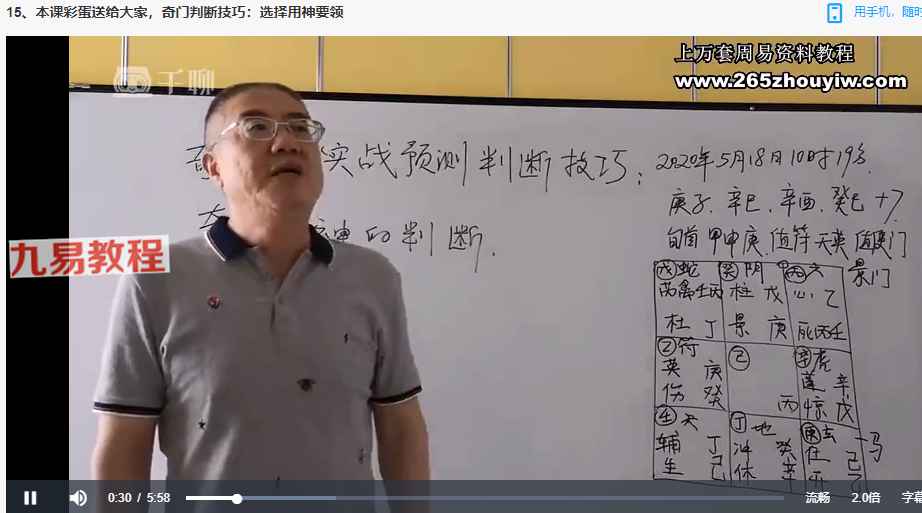 15、本课彩蛋送给大家，奇门判断技巧：选择用神要领
用手机，随时
上万套周易资料教程
www.265zhouyiw.com
千聊
实战预测判断技巧：
神的判断.
九易教程
2020年5月18日10时19分
庚子、辛巳、辛酉、癸巳
旬首 甲申庚 值符 天英 值
景门
戊 蛇
芮禽 壬丙
杜 丁
癸 阴
柱 戊
景 庚
丙 六
心 乙
死 丙壬
乙 符
英 庚
伤 癸
己
丙
辛 虎
蓬 辛
惊 戊
壬 天
辅 丁
生 己
丁 地
冲 癸
休 辛
庚 玄
任 己
马
0:30 / 5:58
流畅
2.0倍
字幕